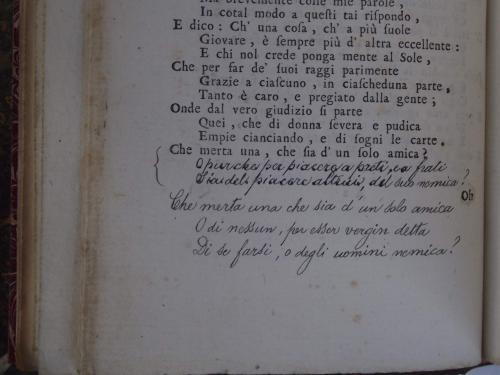 Ma brevemente colle mie parole,
In cotal modo a questi tai rispondo,
E dico: Ch' una cosa, ch' a più suole
Giovare, è sempre più d' altra eccellente:
E chi nol crede ponga mente al Sole,
Che per far de' suoi raggi parimente
Grazie a ciascuno, in ciascheduna parte,
Tanto è caro, e pregiato dalla gente;
Onde dal vero giudizio si parte
Quei, che di donna severa e pudica
Empie cianciando, e di sogni le carte.
Che merta una, che sia d' un solo amica?
O pur che per piacere a preti, o a frati
Sia del piacere altrui, del suo nemica?
Oh
Che merta una che sia d' un solo amica
O di nessun, per esser vergin detta
Di se farsi, o degli uomini nemica?